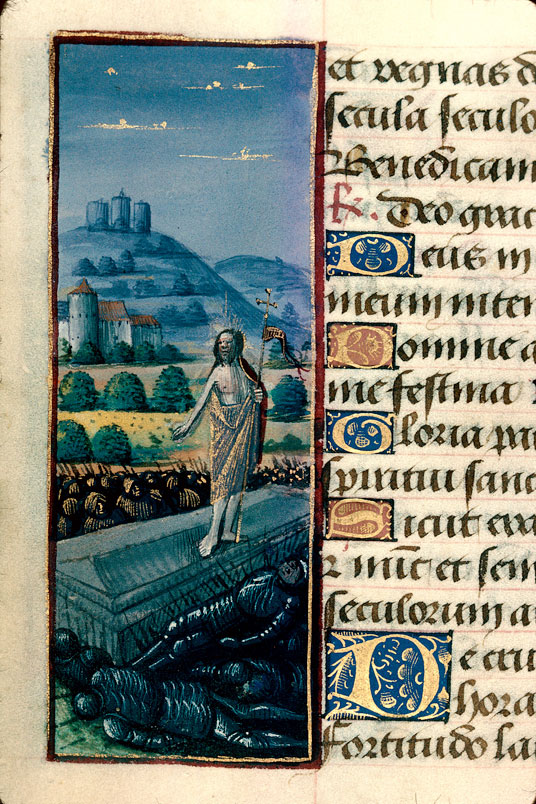 et regnas d
secula seculo
Benedicam
R. Deo grac
Deus in
meum inten
Domine a
me festina
Gloria pat
spiritui sanc
Sicut erat
& nūc et sem
seculorum a
De cru
hora
fortitudo la